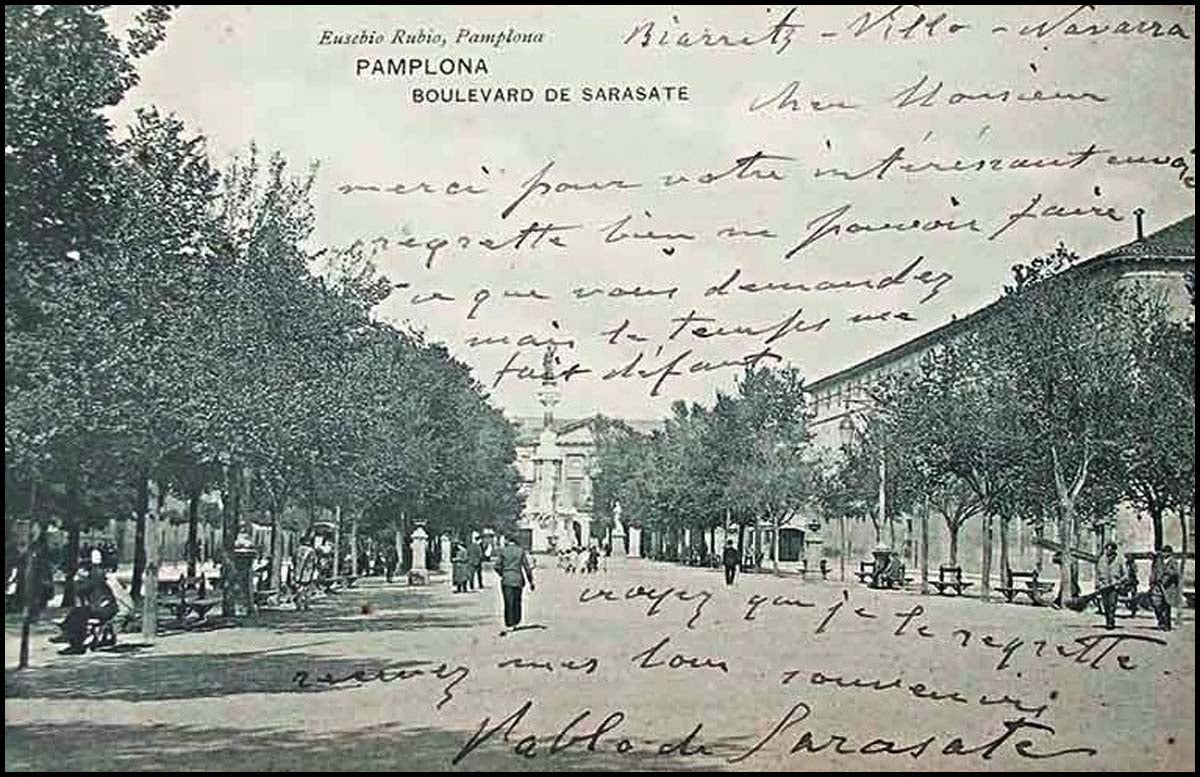 Eusebio Rubio, Pamplona
PAMPLONA
BOULEVARD DE SARASATE
Biarritz - Villa - Navarra
cher Monsieur
merci pour votre intéréssant envoi
regrette bien ne pouvoir faire
ce que vous demandez
mais le temps me
fait défaut
croyez que je le regrette
recevez mes bons souvenirs
Pablo de Sarasate